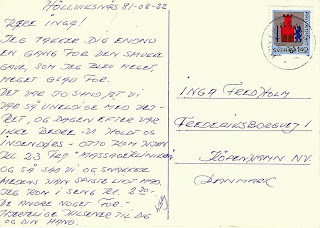 HÖLLVIKSNÄS 81-08-22
KÆRE INGA!
JEG TAKKER DIG ENDNU
EN GANG FOR DEN SMUKKE
GAVE, SOM JEG BLEV MEGET,
MEGET GLAD FOR.
DET VAR JO SAND AT VI
VAR SÅ UHELDIGE MED VEJ-
RET, OG DAGEN EFTER VAR
IKKE BEDRE - VI HOLDT OS
INDENDØRS - OTTO KOM HJEM
KL 23 FRA "MASSAGEKLINIKKEN"
OG SÅ SAD VI OG SNAKKEDE
MEDENS HAN SPISTE LIDT MAD.
JEG KOM I SENG KL. 2.30 -
DE ANDRE NOGET FØR. -
HJERTELIGE HILSENER TIL DIG
OG DIN MAND.
SVERIGE 140
INGA FREDHOLM
FREDERIKSBORGVEJ 1
KÖPENHAMN NV.
DANMARK